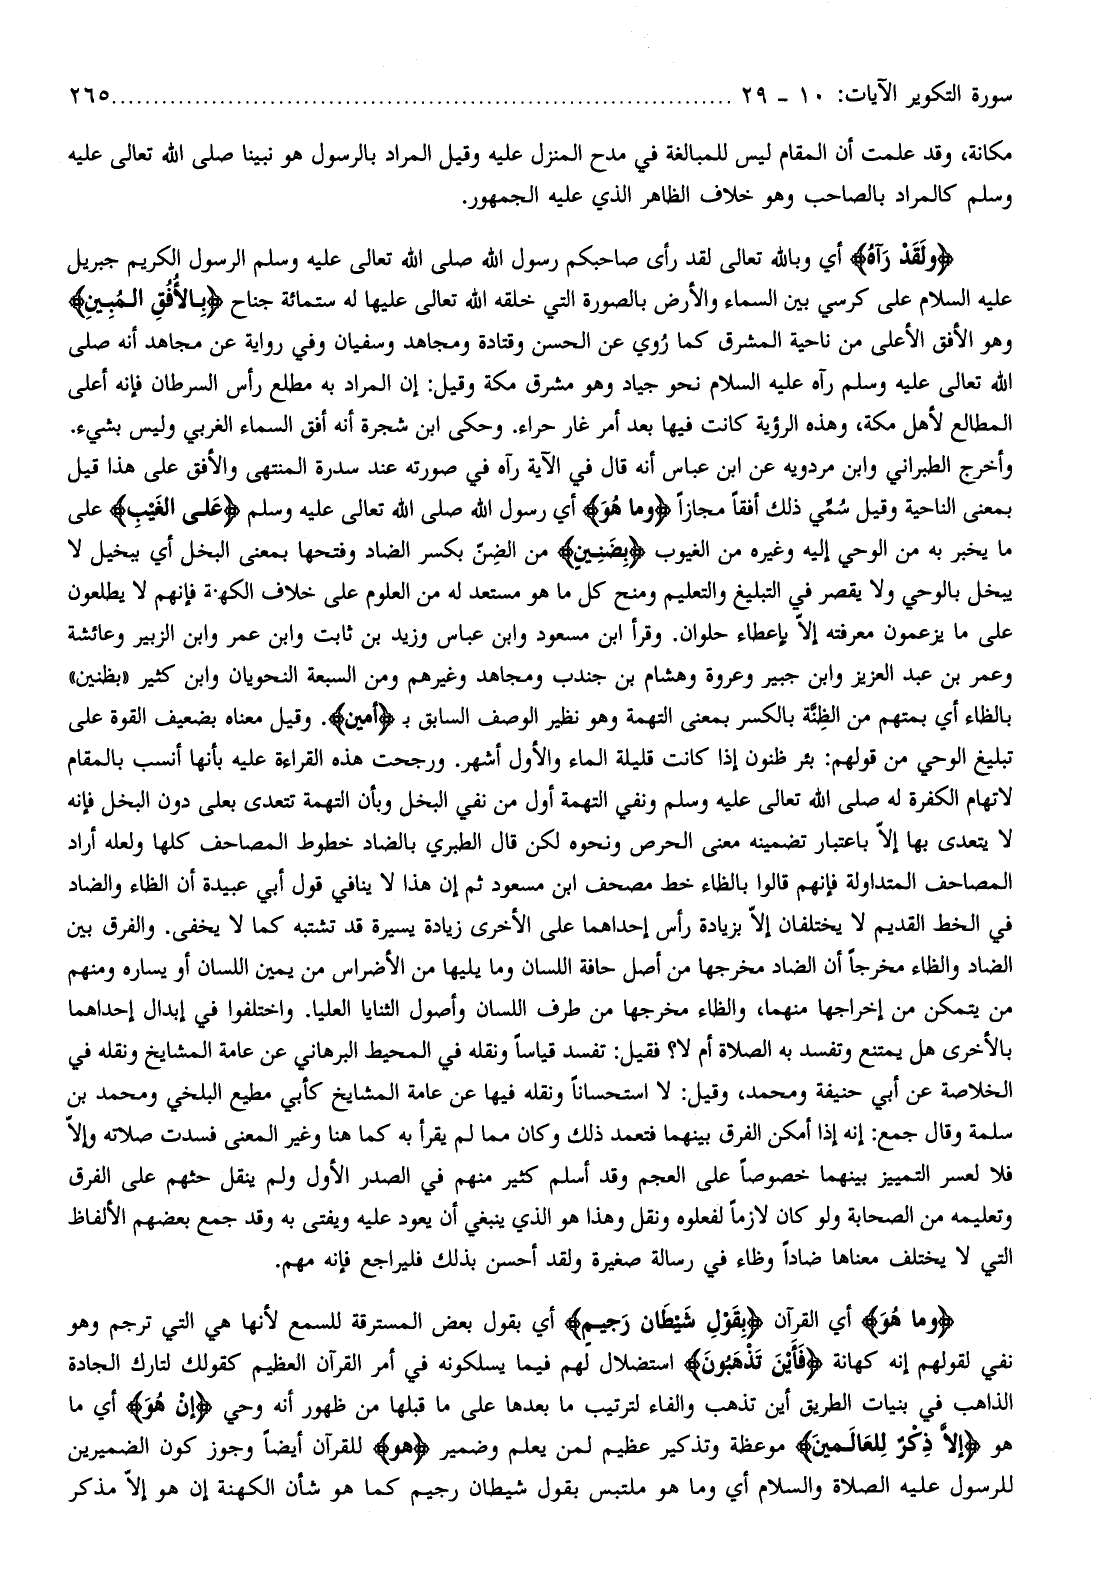 سورة التكوير الآيات: ١٠ ـ ٢٩ ........................................................................ ٢٦٥
مكانة، وقد علمت أن المقام ليس للمبالغة في مدح المنزل عليه وقيل المراد بالرسول هو نبينا صلى الله تعالى عليه
وسلم كالمراد بالصاحب وهو خلاف الظاهر الذي عليه الجمهور.
﴿ولَقَدْ رَآهُ﴾ أي وبالله تعالى لقد رأى صاحبكم رسول الله صلى الله تعالى عليه وسلم الرسول الكريم جبريل
عليه السلام على كرسي بين السماء والأرض بالصورة التي خلقه الله تعالى عليها له ستمائة جناح ﴿بِالأُفُقِ المُبِينِ﴾
وهو الأفق الأعلى من ناحية المشرق كما رُوي عن الحسن وقتادة ومجاهد وسفيان وفي رواية عن مجاهد أنه صلى
الله تعالى عليه وسلم رآه عليه السلام نحو جياد وهو مشرق مكة وقيل: إن المراد به مطلع رأس السرطان فإنه أعلى
المطالع لأهل مكة، وهذه الرؤية كانت فيها بعد أمر غار حراء. وحكى ابن شجرة أنه أفق السماء الغربي وليس بشيء.
وأخرج الطبراني وابن مردويه عن ابن عباس أنه قال في الآية رآه في صورته عند سدرة المنتهى والأفق على هذا قيل
بمعنى الناحية وقيل سُمِّي ذلك أفقاً مجازاً ﴿وما هُوَ﴾ أي رسول الله صلى الله تعالى عليه وسلم ﴿عَلى الغَيْبِ﴾ على
ما يخبر به من الوحي إليه وغيره من الغيوب ﴿بِضَنِينٍ﴾ من الضِنّ بكسر الضاد وفتحها بمعنى البخل أي ببخيل لا
يبخل بالوحي ولا يقصر في التبليغ والتعليم ومنح كل ما هو مستعد له من العلوم على خلاف الكهنة فإنهم لا يطلعون
على ما يزعمون معرفته إلاّ بإعطاء حلوان. وقرأ ابن مسعود وابن عباس وزيد بن ثابت وابن عمر وابن الزبير وعائشة
وعمر بن عبد العزيز وابن جبير وعروة وهشام بن جندب ومجاهد وغيرهم ومن السبعة النحويان وابن كثير «بظنين»
بالظاء أي بمتهم من الظِنَّة بالكسر بمعنى التهمة وهو نظير الوصف السابق بـ ﴿أمين﴾. وقيل معناه بضعيف القوة على
تبليغ الوحي من قولهم: بئر ظنون إذا كانت قليلة الماء والأول أشهر. ورجحت هذه القراءة عليه بأنها أنسب بالمقام
لاتهام الكفرة له صلى الله تعالى عليه وسلم ونفي التهمة أول من نفي البخل وبأن التهمة تتعدى بعلى دون البخل فإنه
لا يتعدى بها إلاّ باعتبار تضمينه معنى الحرص ونحوه لكن قال الطبري بالضاد خطوط المصاحف كلها ولعله أراد
المصاحف المتداولة فإنهم قالوا بالظاء خط مصحف ابن مسعود ثم إن هذا لا ينافي قول أبي عبيدة أن الظاء والضاد
في الخط القديم لا يختلفان إلاّ بزيادة رأس إحداهما على الأخرى زيادة يسيرة قد تشتبه كما لا يخفى. والفرق بين
الضاد والظاء مخرجاً أن الضاد مخرجها من أصل حافة اللسان وما يليها من الأضراس من يمين اللسان أو يساره ومنهم
من يتمكن من إخراجها منهما، والظاء مخرجها من طرف اللسان وأصول الثنايا العليا. واختلفوا في إبدال إحداهما
بالأخرى هل يمتنع وتفسد به الصلاة أم لا؟ فقيل: تفسد قياساً ونقله في المحيط البرهاني عن عامة المشايخ ونقله في
الخلاصة عن أبي حنيفة ومحمد، وقيل: لا استحساناً ونقله فيها عن عامة المشايخ كأبي مطيع البلخي ومحمد بن
سلمة وقال جمع: إنه إذا أمكن الفرق بينهما فتعمد ذلك وكان مما لم يقرأ به كما هنا وغير المعنى فسدت صلاته وإلاّ
فلا لعسر التمييز بينهما خصوصاً على العجم وقد أسلم كثير منهم في الصدر الأول ولم ينقل حثهم على الفرق
وتعليمه من الصحابة ولو كان لازماً لفعلوه ونقل وهذا هو الذي ينبغي أن يعود عليه ويفتى به وقد جمع بعضهم الألفاظ
التي لا يختلف معناها ضاداً وظاء في رسالة صغيرة ولقد أحسن بذلك فليراجع فإنه مهم.
﴿وما هُوَ﴾ أي القرآن ﴿بِقَوْلِ شَيْطَان رَجِيمٍ﴾ أي بقول بعض المسترقة للسمع لأنها هي التي ترجم وهو
نفي لقولهم إنه كهانة ﴿فَأَيْنَ تَذْهَبُونَ﴾ استضلال لهم فيما يسلكونه في أمر القرآن العظيم كقولك لتارك الجادة
الذاهب في بنيات الطريق أين تذهب والفاء لترتيب ما بعدها على ما قبلها من ظهور أنه وحي ﴿إنْ هُوَ﴾ أي ما
هو ﴿إلاَّ ذِكْرٌ لِلعَالَمينَ﴾ موعظة وتذكير عظيم لمن يعلم وضمير ﴿هو﴾ للقرآن أيضاً وجوز كون الضميرين
للرسول عليه الصلاة والسلام أي وما هو ملتبس بقول شيطان رجيم كما هو شأن الكهنة إن هو إلاّ مذكر